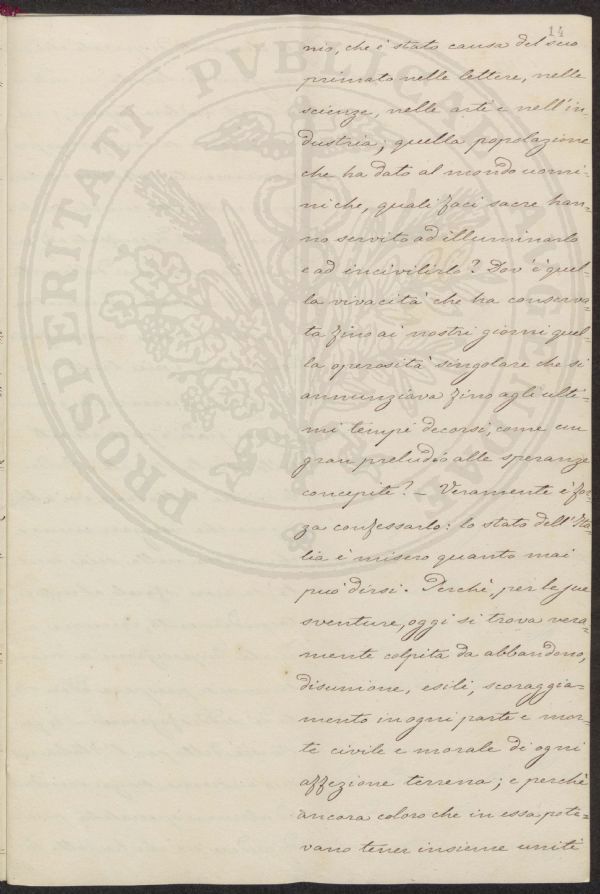 14
nio, che è stato causa del suo
primato nelle lettere, nelle
scienze, nelle arti e nell'in
dustria; quella popolazione
che ha dato al mondo uomi-
ni che, quali faci sacre han-
no servito ad illuminarlo
e ad incivilirlo? Dov'è quel-
la vivacità che ha conserva-
ta fino ai nostri giorni quel-
la operosità singolare che si
annunziava fino agli ulti-
mi tempi decorsi, come un
gran preludio alle speranze
concepite? — Veramente è for-
za confessarlo: lo stato dell'Ita-
lia è misero quanto mai
può dirsi. Perchè, per le sue
sventure, oggi si trova vera-
mente colpita da abbandono,
disunione, esili, scoraggia-
mento in ogni parte e mor-
te civile e morale di ogni
affezione terrena; e perchè
ancora coloro che in essa pote-
vano tener insieme uniti
PROSPERITATI PVBLICAE AVGENDAE